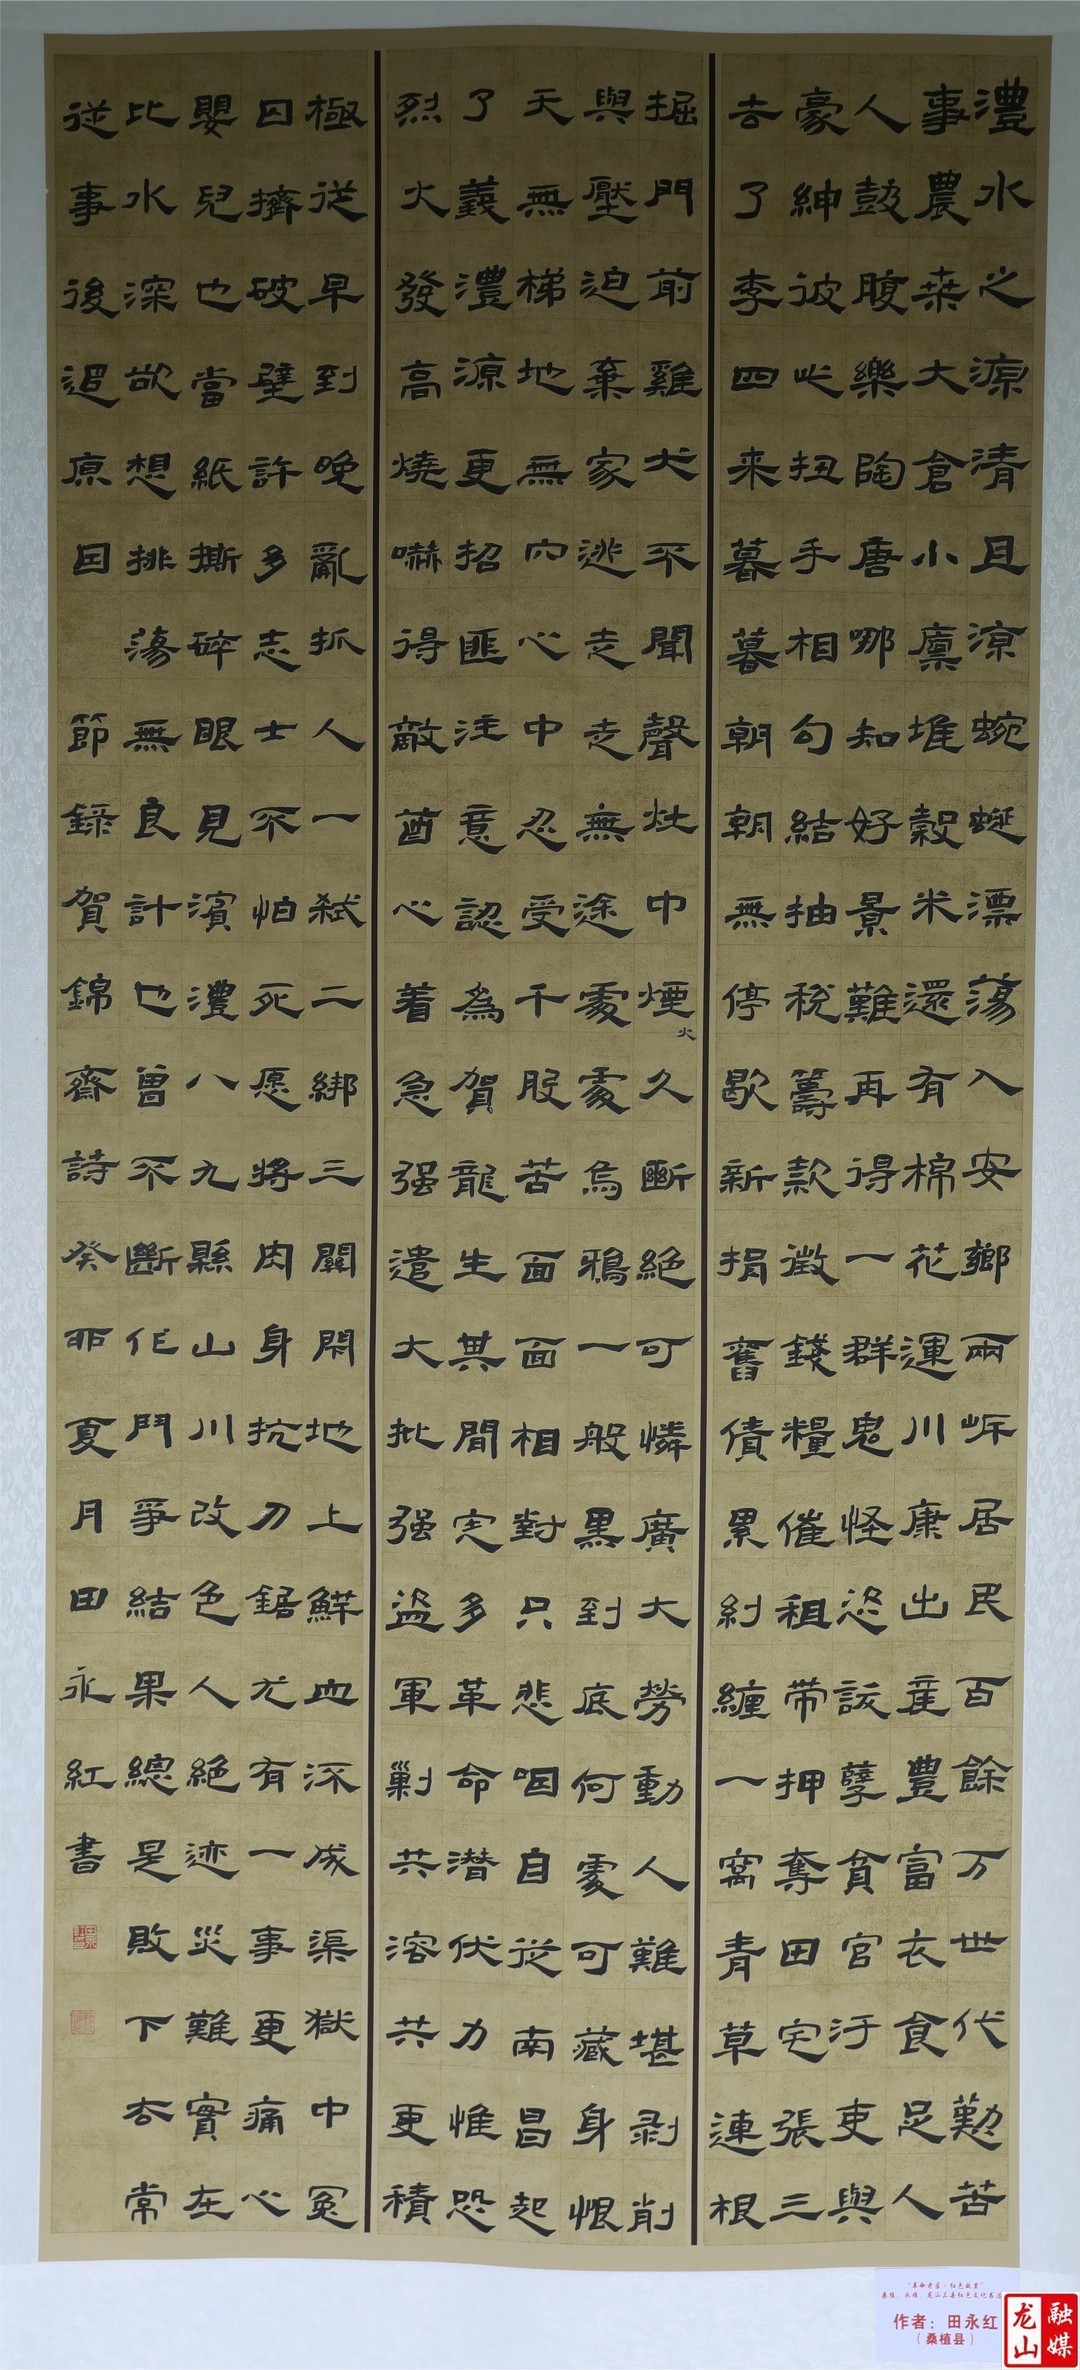 澧水之源清且涼蜿蜒漂蕩入安鄉兩岍居民百餘万世代勤苦
事農桒大倉小廩堆穀米還有棉花運川康出産豐富衣食足人
人鼓腹樂陶唐哪知好景難再得一群鬼怪恣該孽貪官汙吏與
豪紳彼此扭手相勾結抽稅籌款徵錢糧催租帶押奪田宅張三
去了李四来暮暮朝朝無停歇新捐舊債累糾纏一窩青草連根
掘門前雞犬不聞聲灶中煙火久斷絕可憐廣大勞動人難堪剥削
與壓迫棄家逃走走無途處處烏鴉一般黑到底何處可藏身恨
天無梯地無穴心中忍受千股苦面面相對只悲咽自從南昌起
了義澧源更招匪注意認為賀龍生其間定多革命潛伏力惟恐
烈火發高燒嚇得敵酋心着急强遣大批强盜軍剿共溶共更積
極從早到晚亂抓人一弑二綁三關閑地上鮮血流成渠獄中冤
曰擠破壁許多志士不怕死愿將肉身抗刀鋸尤有一事更痛心
嬰兒也當紙撕碎眼見濱澧八九縣山川改色人絕迹災難實在
比水深欲想排蕩無良計也曾不斷作鬥爭結果總是敗下去常
從事後迴原因 節錄賀錦齋詩癸卯夏月田永紅書
“革命老区·红色故里”
桑植、永顺、龙山三县红色文化书法
作者：田永红
（桑植县）
龙山融媒